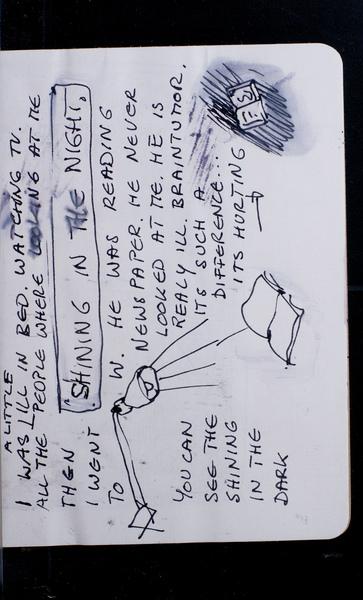 A LITTLE
I WAS ILL IN BED. WATCHING TV.
ALL THE PEOPLE WHERE LOOKING AT ME
THEN SHINING IN THE NIGHT,
I WENT
TO W. HE WAS READING
NEWSPAPER. HE NEVER
LOOKED AT ME. HE IS
REALY ILL. BRAINTUMOR.
ITS SUCH A
DIFFERENCE...
ITS HURTING
YOU CAN
SEE THE
SHINING
IN THE
DARK